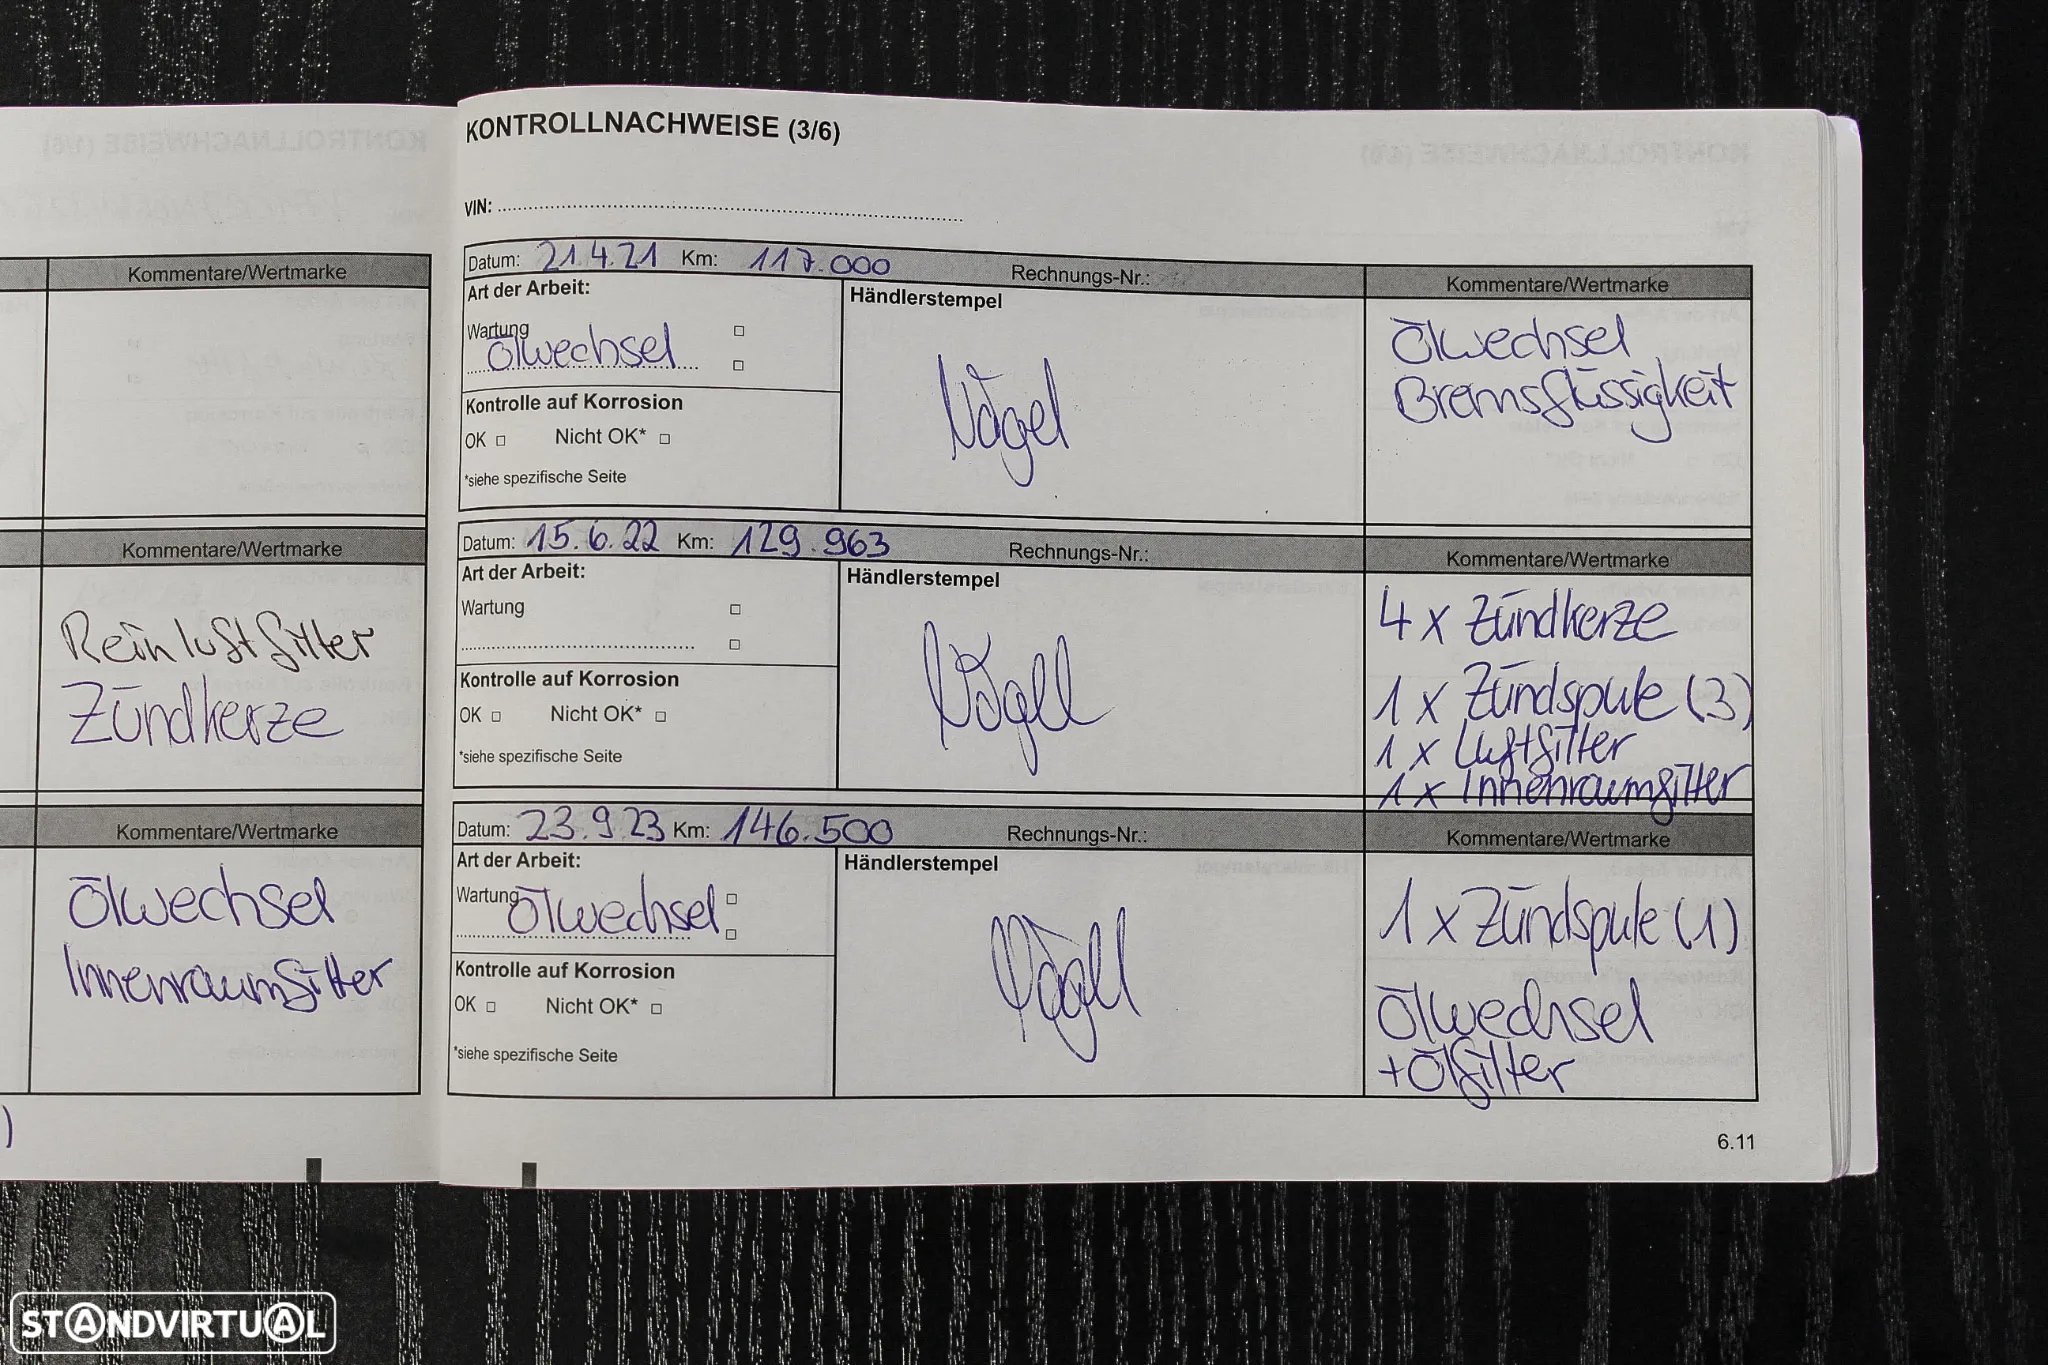 Kommentare/Wertmarke
Kommentare/Wertmarke
Reinluftfilter
Zündkerze
Kommentare/Wertmarke
Ölwechsel
Innenraumfilter
KONTROLLNACHWEISE (3/6)
VIN:
Datum: 21.4.21 Km: 117.000 Rechnungs-Nr.: Kommentare/Wertmarke
Art der Arbeit:
Händlerstempel
Wartung
Ölwechsel
Kontrolle auf Korrosion
OK Nicht OK*
*siehe spezifische Seite
Nägel
Ölwechsel
Bremsflüssigkeit
Datum: 15.6.22 Km: 129.963 Rechnungs-Nr.: Kommentare/Wertmarke
Art der Arbeit:
Händlerstempel
Wartung
Kontrolle auf Korrosion
OK Nicht OK*
*siehe spezifische Seite
4 x Zündkerze
1 x Zündspule (3)
1 x Luftfilter
1 x Innenraumfilter
Datum: 23.9.23 Km: 146.500 Rechnungs-Nr.: Kommentare/Wertmarke
Art der Arbeit:
Händlerstempel
Wartung
Ölwechsel
Kontrolle auf Korrosion
OK Nicht OK*
*siehe spezifische Seite
1 x Zündspule (1)
Ölwechsel
+ Ölfilter
6.11
STANDVIRTUAL